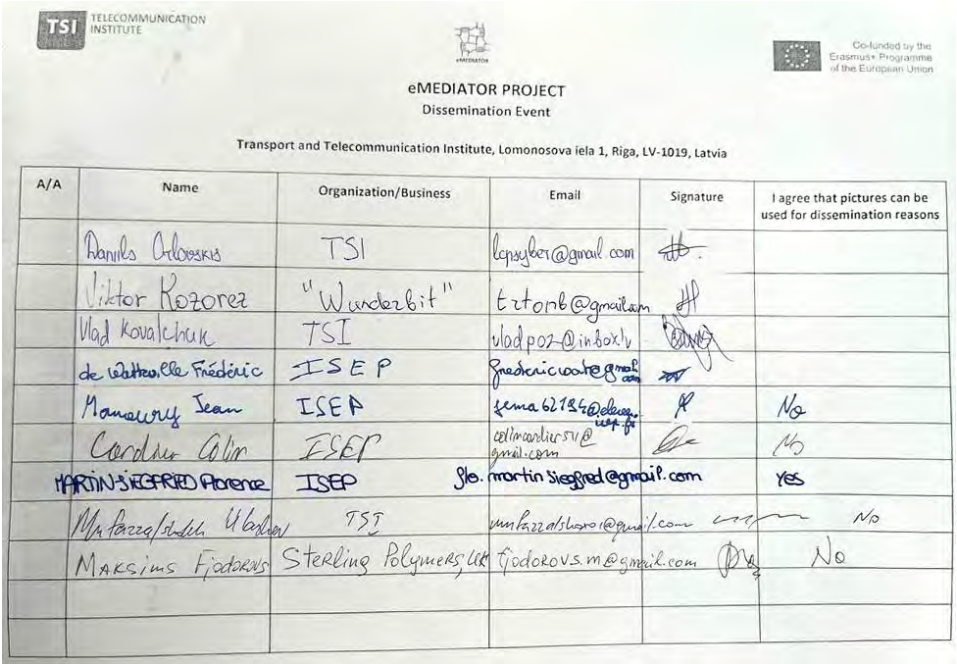 TSI TELECOMMUNICATION
INSTITUTE
eMEDIATOR
Co-funded by the
Erasmus+ Programme
of the European Union
eMEDIATOR PROJECT
Dissemination Event
Transport and Telecommunication Institute, Lomonosova iela 1, Riga, LV-1019, Latvia
A/A Name Organization/Business Email Signature I agree that pictures can be
used for dissemination reasons
Daniils Orlovskis TSI lcpsyber@gmail.com
Viktor Kozorez "Wunderbit"
Vlad Kovalchuk TSI vladpoz@inbox.lv
de Watteville Frédéric ISEP
Jean ISEP No
Cordier Colin ISEP colincordiersu@
gmail.com No
MARTIN-SIEGFRIED Florence ISEP flo.martinsiegfried@gmail.com YES
TSI No
MAKSIMS FJODOROVS Sterling Polymers, UK fjodorovs.m@gmail.com No